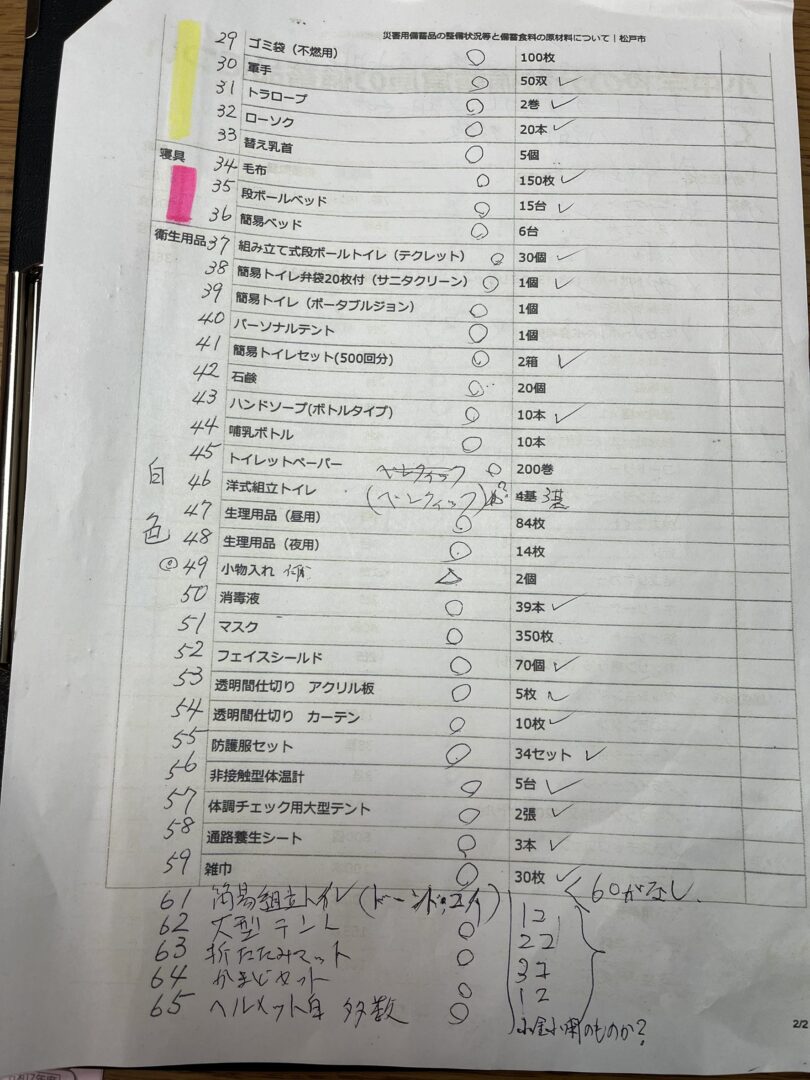 災害用備蓄品の整備状況等と備蓄食料の原材料について | 松戸市
29 ゴミ袋（不燃用） ○ 100枚
30 軍手 ○ 50双 ✓
31 トラロープ ○ 2巻 ✓
32 ローソク ○ 20本 ✓
33 替え乳首 ○ 5個
寝具
34 毛布 ○ 150枚 ✓
35 段ボールベッド ○ 15台 ✓
36 簡易ベッド ○ 6台
衛生用品
37 組み立て式段ボールトイレ（テクレット） ○ 30個 ✓
38 簡易トイレ弁袋20枚付（サニタクリーン） ○ 1個 ✓
39 簡易トイレ（ポータブルジョン） ○ 1個
40 パーソナルテント ○ 1個
41 簡易トイレセット(500回分) ○ 2箱 ✓
42 石鹸 ○ 20個
43 ハンドソープ(ボトルタイプ) ○ 10本 ✓
44 哺乳ボトル ○ 10本
45 トイレットペーパー ○ 200巻
46 洋式組立トイレ (ベンクイック) 4基 3基
47 生理用品（昼用） ○ 84枚
48 生理用品（夜用） ○ 14枚
49 小物入れ △ 2個
50 消毒液 ○ 39本 ✓
51 マスク ○ 350枚
52 フェイスシールド ○ 70個 ✓
53 透明間仕切り アクリル板 ○ 5枚 ✓
54 透明間仕切り カーテン ○ 10枚 ✓
55 防護服セット ○ 34セット ✓
56 非接触型体温計 ○ 5台 ✓
57 体調チェック用大型テント ○ 2張 ✓
58 通路養生シート ○ 3本 ✓
59 雑巾 ○ 30枚 ✓
<60がなし.
61 簡易組立トイレ
62 大型テント ○
63 折たたみマット ○
64 かまどセット ○
65 ヘルメット白 多数 ○
のものか?
2/2